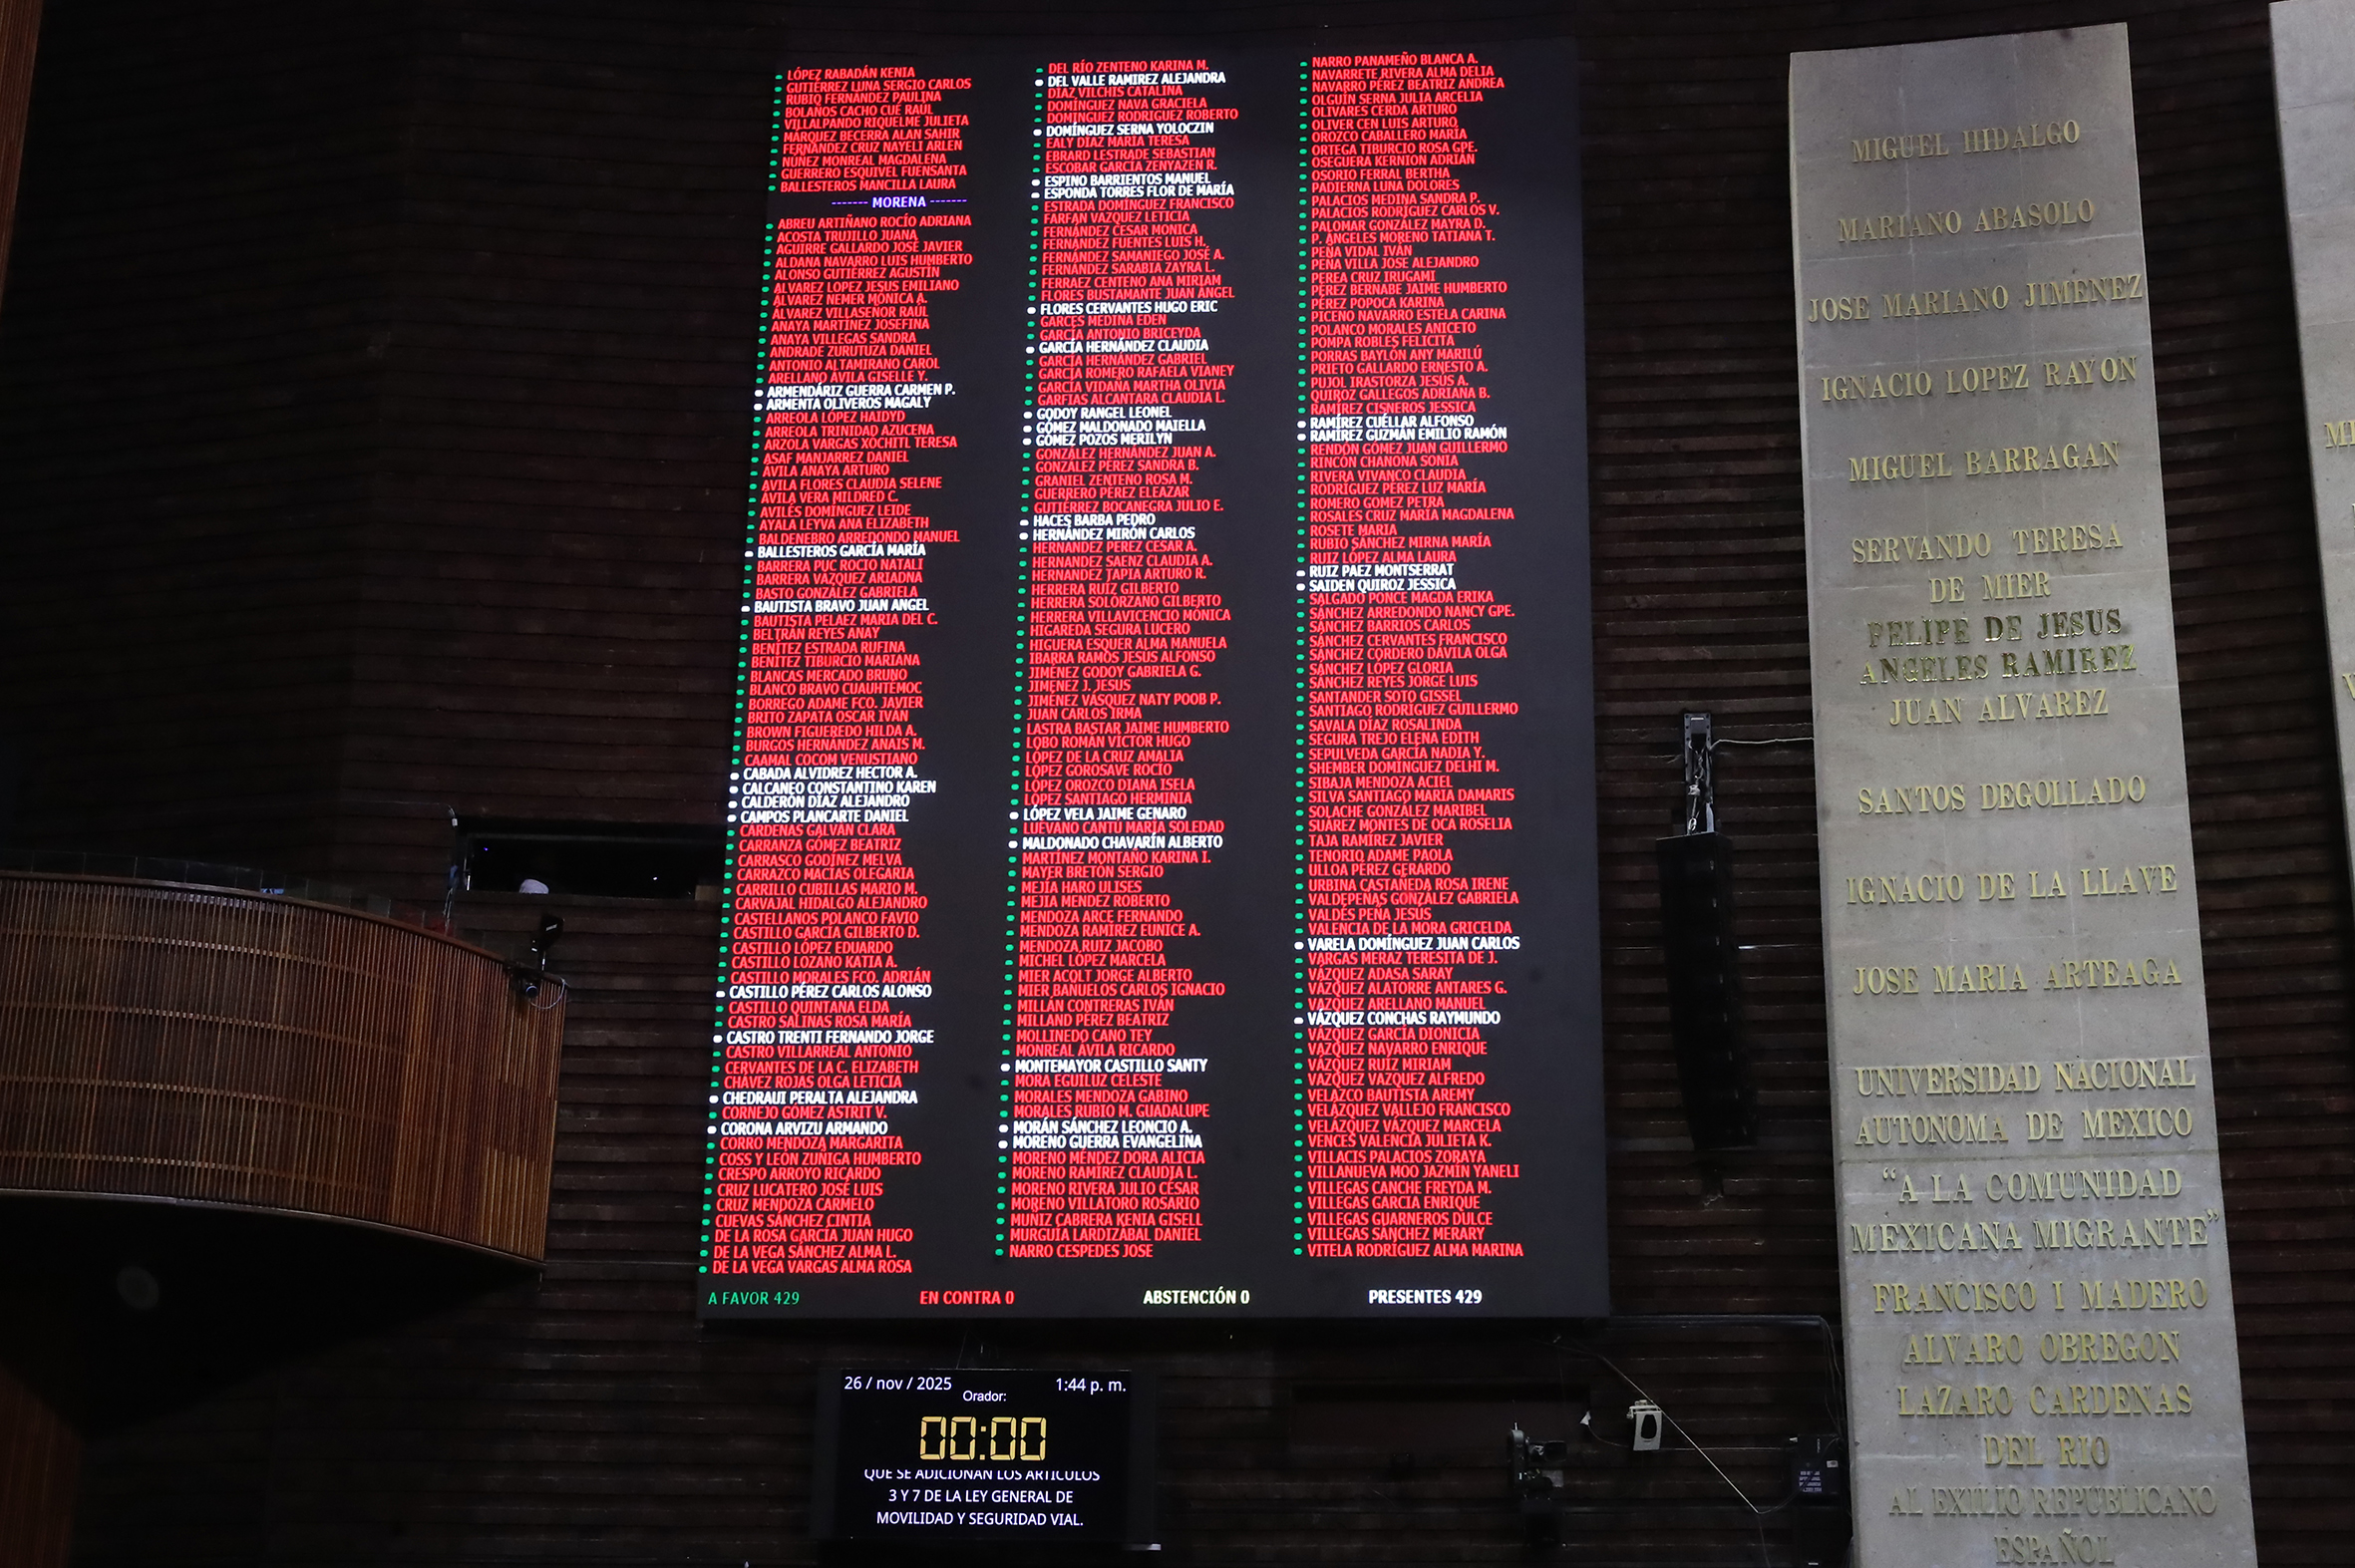 LÓPEZ RABADÁN KENIA
GUTIÉRREZ LUNA SERGIO CARLOS
RUBIO FERNÁNDEZ PAULINA
BOLAÑOS CACHO CUÉ RAÚL
VILLALPANDO RIQUELME JULIETA
MÁRQUEZ BECERRA ALAN SAHIR
FERNÁNDEZ CRUZ NAYELI ARLEN
NÚÑEZ MONREAL MAGDALENA
GUERRERO ESQUIVEL FUENSANTA
BALLESTEROS MANCILLA LAURA
------- MORENA -------
ABREU ARTIÑANO ROCÍO ADRIANA
ACOSTA TRUJILLO JUANA
AGUIRRE GALLARDO JOSÉ JAVIER
ALDANA NAVARRO LUIS HUMBERTO
ALONSO GUTIÉRREZ AGUSTÍN
ÁLVAREZ LÓPEZ JESÚS EMILIANO
ÁLVAREZ NEMER MÓNICA A.
ÁLVAREZ VILLASEÑOR RAÚL
ANAYA MARTÍNEZ JOSEFINA
ANAYA VILLEGAS SANDRA
ANDRADE ZURUTUZA DANIEL
ANTONIO ALTAMIRANO CAROL
ARELLANO ÁVILA GISELLE Y.
ARMENDÁRIZ GUERRA CARMEN P.
ARMENTA OLIVEROS MAGALY
ARREOLA LÓPEZ HAIDYD
ARREOLA TRINIDAD AZUCENA
ARZOLA VARGAS XÓCHITL TERESA
ASAF MANJARREZ DANIEL
ÁVILA ANAYA ARTURO
ÁVILA FLORES CLAUDIA SELENE
ÁVILA VERA MILDRED C.
AVILÉS DOMÍNGUEZ LEIDE
AYALA LEYVA ANA ELIZABETH
BALDENEBRO ARREDONDO MANUEL
BALLESTEROS GARCÍA MARÍA
BARRERA PUC ROCÍO NATALI
BARRERA VÁZQUEZ ARIADNA
BASTO GONZÁLEZ GABRIELA
BAUTISTA BRAVO JUAN ÁNGEL
BAUTISTA PELAEZ MARIA DEL C.
BELTRÁN REYES ANAY
BENÍTEZ ESTRADA RUFINA
BENÍTEZ TIBURCIO MARIANA
BLANCAS MERCADO BRUNO
BLANCO BRAVO CUAUHTÉMOC
BORREGO ADAME FCO. JAVIER
BRITO ZAPATA OSCAR IVÁN
BROWN FIGUEREDO HILDA A.
BURGOS HERNÁNDEZ ANAIS M.
CAAMAL COCOM VENUSTIANO
CABADA ALVIDREZ HECTOR A.
CALCANEO CONSTANTINO KAREN
CALDERÓN DÍAZ ALEJANDRO
CAMPOS PLANCARTE DANIEL
CÁRDENAS GALVÁN CLARA
CARRANZA GÓMEZ BEATRIZ
CARRASCO GODÍNEZ MELVA
CARRAZCO MACÍAS OLEGARIA
CARRILLO CUBILLAS MARIO M.
CARVAJAL HIDALGO ALEJANDRO
CASTELLANOS POLANCO FAVIO
CASTILLO GARCÍA GILBERTO D.
CASTILLO LÓPEZ EDUARDO
CASTILLO LOZANO KATIA A.
CASTILLO MORALES FCO. ADRIÁN
CASTILLO PÉREZ CARLOS ALONSO
CASTILLO QUINTANA ELDA
CASTRO SALINAS ROSA MARÍA
CASTRO TRENTI FERNANDO JORGE
CASTRO VILLARREAL ANTONIO
CERVANTES DE LA C. ELIZABETH
CHÁVEZ ROJAS OLGA LETICIA
CHEDRAUI PERALTA ALEJANDRA
CORNEJO GÓMEZ ASTRIT V.
CORONA ARVIZU ARMANDO
CORRO MENDOZA MARGARITA
COSS Y LEÓN ZUÑIGA HUMBERTO
CRESPO ARROYO RICARDO
CRUZ LUCATERO JOSÉ LUIS
CRUZ MENDOZA CARMELO
CUEVAS SÁNCHEZ CINTIA
DE LA ROSA GARCÍA JUAN HUGO
DE LA VEGA SÁNCHEZ ALMA L.
DE LA VEGA VARGAS ALMA ROSA
DEL RÍO ZENTENO KARINA M.
DEL VALLE RAMIREZ ALEJANDRA
DÍAZ VILCHIS CATALINA
DOMÍNGUEZ NAVA GRACIELA
DOMÍNGUEZ RODRÍGUEZ ROBERTO
DOMÍNGUEZ SERNA YOLOCZIN
EALY DÍAZ MARÍA TERESA
EBRARD LESTRADE SEBASTIAN
ESCOBAR GARCÍA ZENYAZEN R.
ESPINO BARRIENTOS MANUEL
ESPONDA TORRES FLOR DE MARÍA
ESTRADA DOMÍNGUEZ FRANCISCO
FARFÁN VÁZQUEZ LETICIA
FERNÁNDEZ CÉSAR MÓNICA
FERNÁNDEZ FUENTES LUIS H.
FERNÁNDEZ SAMANIEGO JOSÉ A.
FERNÁNDEZ SARABIA ZAYRA L.
FERRÁEZ CENTENO ANA MIRIAM
FLORES BUSTAMANTE JUAN ÁNGEL
FLORES CERVANTES HUGO ERIC
GARCÉS MEDINA EDEN
GARCÍA ANTONIO BRICEYDA
GARCÍA HERNÁNDEZ CLAUDIA
GARCÍA HERNÁNDEZ GABRIEL
GARCÍA ROMERO RAFAELA VIANEY
GARCÍA VIDAÑA MARTHA OLIVIA
GARFIAS ALCÁNTARA CLAUDIA L.
GODOY RANGEL LEONEL
GÓMEZ MALDONADO MAIELLA
GÓMEZ POZOS MERILYN
GONZÁLEZ HERNÁNDEZ JUAN A.
GONZÁLEZ PÉREZ SANDRA B.
GRANIEL ZENTENO ROSA M.
GUERRERO PÉREZ ELEAZAR
GUTIÉRREZ BOCANEGRA JULIO E.
HACES BARBA PEDRO
HERNÁNDEZ MIRÓN CARLOS
HERNÁNDEZ PÉREZ CÉSAR A.
HERNÁNDEZ SÁENZ CLAUDIA A.
HERNÁNDEZ TAPIA ARTURO R.
HERRERA RUÍZ GILBERTO
HERRERA SOLÓRZANO GILBERTO
HERRERA VILLAVICENCIO MÓNICA
HIGAREDA SEGURA LUCERO
HIGUERA ESQUER ALMA MANUELA
IBARRA RAMOS JESÚS ALFONSO
JIMÉNEZ GODOY GABRIELA G.
JIMÉNEZ J. JESÚS
JIMÉNEZ VÁSQUEZ NATY POOB P.
JUAN CARLOS IRMA
LASTRA BASTAR JAIME HUMBERTO
LOBO ROMÁN VÍCTOR HUGO
LÓPEZ DE LA CRUZ AMALIA
LÓPEZ GOROSAVE ROCÍO
LÓPEZ OROZCO DIANA ISELA
LÓPEZ SANTIAGO HERMINIA
LÓPEZ VELA JAIME GENARO
LUÉVANO CANTÚ MARÍA SOLEDAD
MALDONADO CHAVARÍN ALBERTO
MARTÍNEZ MONTAÑO KARINA I.
MAYER BRETÓN SERGIO
MEJÍA HARO ULISES
MEJÍA MÉNDEZ ROBERTO
MENDOZA ARCE FERNANDO
MENDOZA RAMÍREZ EUNICE A.
MENDOZA RUIZ JACOBO
MICHEL LÓPEZ MARCELA
MIER ACOLT JORGE ALBERTO
MIER BAÑUELOS CARLOS IGNACIO
MILLÁN CONTRERAS IVÁN
MILLAND PÉREZ BEATRIZ
MOLLINEDO CANO TEY
MONREAL ÁVILA RICARDO
MONTEMAYOR CASTILLO SANTY
MORA EGUILUZ CELESTE
MORALES MENDOZA GABINO
MORALES RUBIO M. GUADALUPE
MORÁN SÁNCHEZ LEONCIO A.
MORENO GUERRA EVANGELINA
MORENO MÉNDEZ DORA ALICIA
MORENO RAMÍREZ CLAUDIA L.
MORENO RIVERA JULIO CÉSAR
MORENO VILLATORO ROSARIO
MUÑIZ CABRERA KENIA GISELL
MURGUÍA LARDIZÁBAL DANIEL
NARRO CÉSPEDES JOSÉ
NARRO PANAMEÑO BLANCA A.
NAVARRETE RIVERA ALMA DELIA
NAVARRO PÉREZ BEATRIZ ANDREA
OLGUÍN SERNA JULIA ARCELIA
OLIVARES CERDA ARTURO
OLIVER CEN LUIS ARTURO
OROZCO CABALLERO MARÍA
ORTEGA TIBURCIO ROSA GPE.
OSEGUERA KERNION ADRIÁN
OSORIO FERRAL BERTHA
PADIERNA LUNA DOLORES
PALACIOS MEDINA SANDRA P.
PALACIOS RODRÍGUEZ CARLOS V.
PALOMAR GONZÁLEZ MAYRA D.
P. ÁNGELES MORENO TATIANA T.
PEÑA VIDAL IVÁN
PEÑA VILLA JOSÉ ALEJANDRO
PEREA CRUZ IRUGAMI
PÉREZ BERNABE JAIME HUMBERTO
PÉREZ POPOCA KARINA
PICENO NAVARRO ESTELA CARINA
POLANCO MORALES ANICETO
POMPA ROBLES FELICITA
PORRAS BAYLÓN ANY MARILÚ
PRIETO GALLARDO ERNESTO A.
PUJOL IRASTORZA JESÚS A.
QUIROZ GALLEGOS ADRIANA B.
RAMÍREZ CISNEROS JESSICA
RAMÍREZ CUÉLLAR ALFONSO
RAMÍREZ GUZMÁN EMILIO RAMÓN
RENDÓN GÓMEZ JUAN GUILLERMO
RINCÓN CHANONA SONIA
RIVERA VIVANCO CLAUDIA
RODRÍGUEZ PÉREZ LUZ MARÍA
ROMERO GÓMEZ PETRA
ROSALES CRUZ MARÍA MAGDALENA
ROSETE MARIA
RUBIO SÁNCHEZ MIRNA MARÍA
RUIZ LÓPEZ ALMA LAURA
RUIZ PAEZ MONTSERRAT
SAIDEN QUIROZ JESSICA
SALGADO PONCE MAGDA ERIKA
SÁNCHEZ ARREDONDO NANCY GPE.
SÁNCHEZ BARRIOS CARLOS
SÁNCHEZ CERVANTES FRANCISCO
SÁNCHEZ CORDERO DÁVILA OLGA
SÁNCHEZ LÓPEZ GLORIA
SÁNCHEZ REYES JORGE LUIS
SANTANDER SOTO GISSEL
SANTIAGO RODRÍGUEZ GUILLERMO
SAVALA DÍAZ ROSALINDA
SEGURA TREJO ELENA EDITH
SEPÚLVEDA GARCÍA NADIA Y.
SHEMBER DOMÍNGUEZ DELHI M.
SIBAJA MENDOZA ACIEL
SILVA SANTIAGO MARÍA DAMARIS
SOLACHE GONZÁLEZ MARIBEL
SUÁREZ MONTES DE OCA ROSELIA
TAJA RAMÍREZ JAVIER
TENORIO ADAME PAOLA
ULLOA PÉREZ GERARDO
URBINA CASTAÑEDA ROSA IRENE
VALDEPEÑAS GONZÁLEZ GABRIELA
VALDÉS PEÑA JESÚS
VALENCIA DE LA MORA GRICELDA
VARELA DOMÍNGUEZ JUAN CARLOS
VARGAS MERAZ TERESITA DE J.
VÁZQUEZ ADASA SARAY
VÁZQUEZ ALATORRE ANTARES G.
VÁZQUEZ ARELLANO MANUEL
VÁZQUEZ CONCHAS RAYMUNDO
VÁZQUEZ GARCÍA DIONICIA
VÁZQUEZ NAVARRO ENRIQUE
VÁZQUEZ RUIZ MIRIAM
VÁZQUEZ VÁZQUEZ ALFREDO
VELAZCO BAUTISTA AREMY
VELÁZQUEZ VALLEJO FRANCISCO
VELÁZQUEZ VÁZQUEZ MARCELA
VENCES VALENCIA JULIETA K.
VILLACIS PALACIOS ZORAYA
VILLANUEVA MOO JAZMÍN YANELI
VILLEGAS CANCHE FREYDA M.
VILLEGAS GARCÍA ENRIQUE
VILLEGAS GUARNEROS DULCE
VILLEGAS SÁNCHEZ MERARY
VITELA RODRÍGUEZ ALMA MARINA
A FAVOR 429 EN CONTRA 0 ABSTENCIÓN 0 PRESENTES 429
26 / nov / 2025 1:44 p. m.
Orador:
00:00
QUE SE ADICIONAN LOS ARTÍCULOS
3 Y 7 DE LA LEY GENERAL DE
MOVILIDAD Y SEGURIDAD VIAL.
MIGUEL HIDALGO
MARIANO ABASOLO
JOSE MARIANO JIMENEZ
IGNACIO LOPEZ RAYON
MIGUEL BARRAGAN
SERVANDO TERESA
DE MIER
FELIPE DE JESUS
ANGELES RAMIREZ
JUAN ALVAREZ
SANTOS DEGOLLADO
IGNACIO DE LA LLAVE
JOSE MARIA ARTEAGA
UNIVERSIDAD NACIONAL
AUTONOMA DE MEXICO
“A LA COMUNIDAD
MEXICANA MIGRANTE”
FRANCISCO I MADERO
ALVARO OBREGON
LAZARO CARDENAS
DEL RIO
AL EXILIO REPUBLICANO
ESPAÑOL